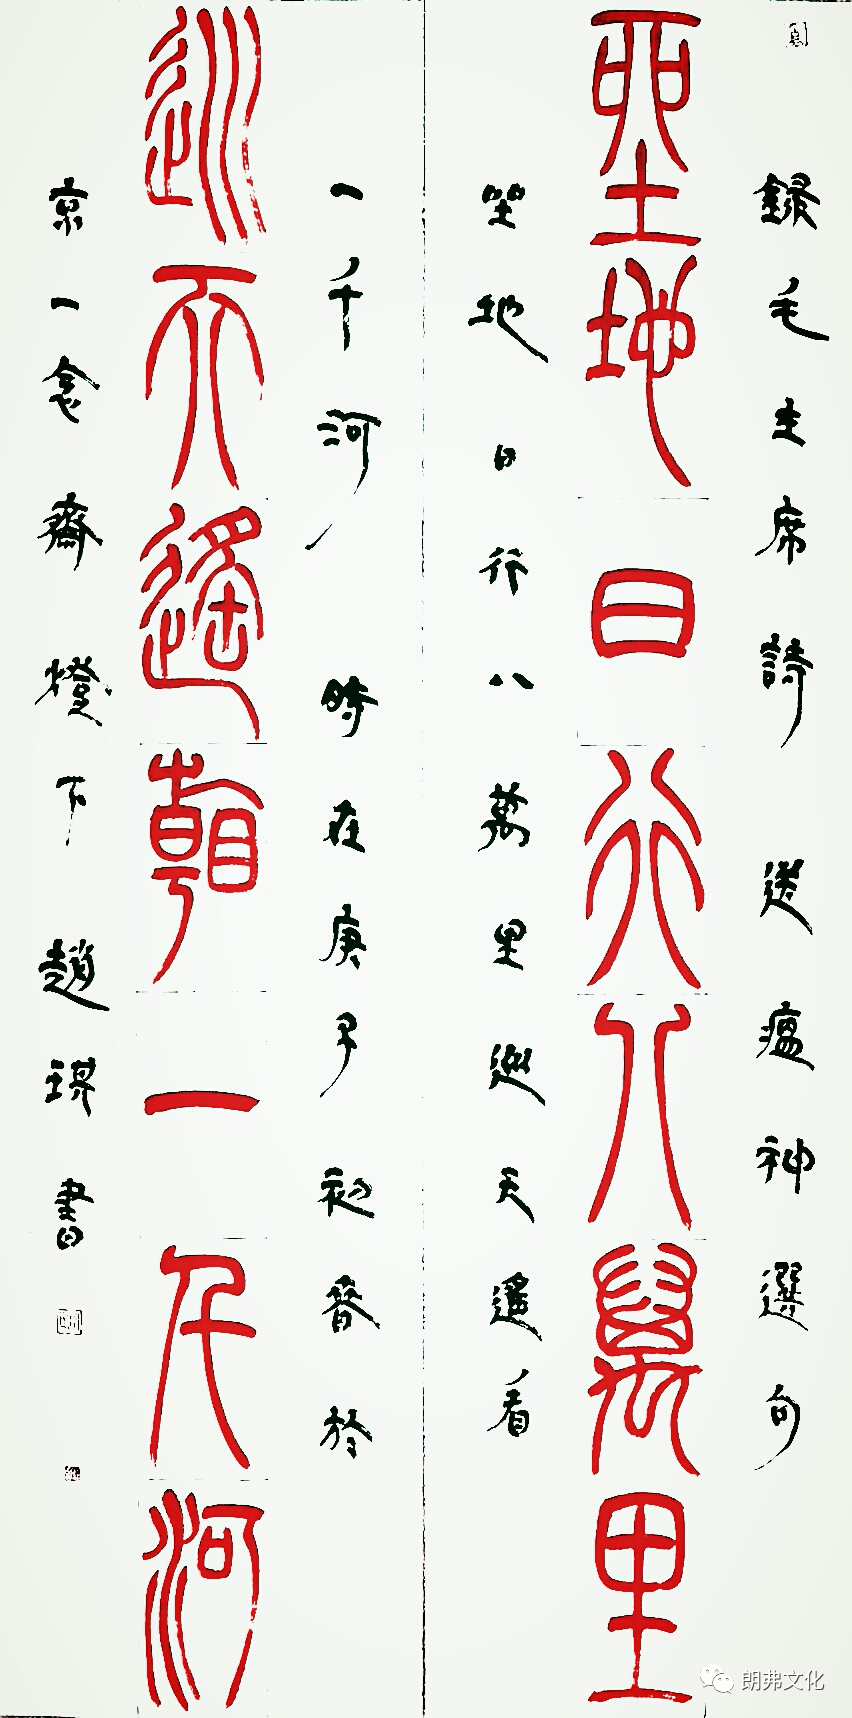 録毛主席詩 送瘟神選句
坐地日行八萬里
坐地日行八萬里巡天遥看
一千河 時在庚子初春於
巡天遥看一千河
京一念齋燈下趙琪書
朗弗文化